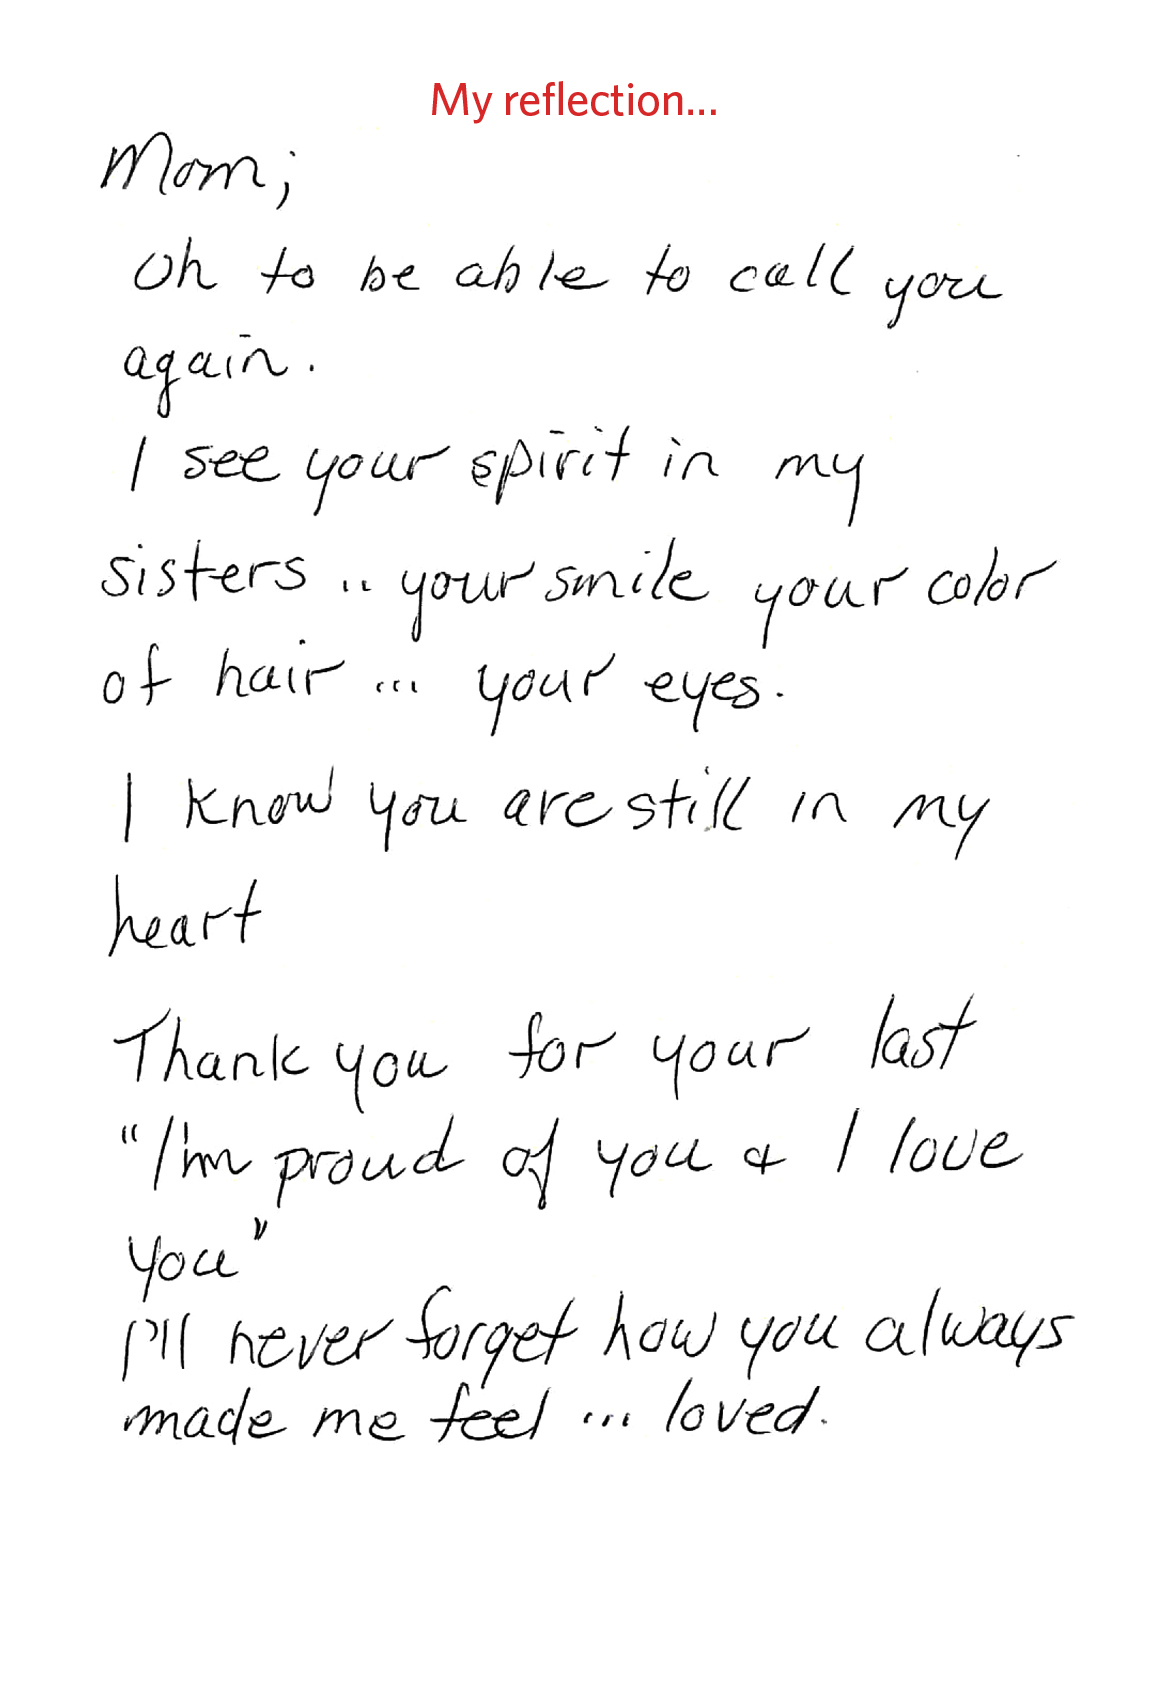 My reflection...
Mom;
Oh to be able to call you
again.
I see your spirit in my
sisters .. your smile your color
of hair ... your eyes.
I know you are still in my
heart
Thank you for your last
"I'm proud of you & I love
you"
I'll never forget how you always
made me feel ... loved.